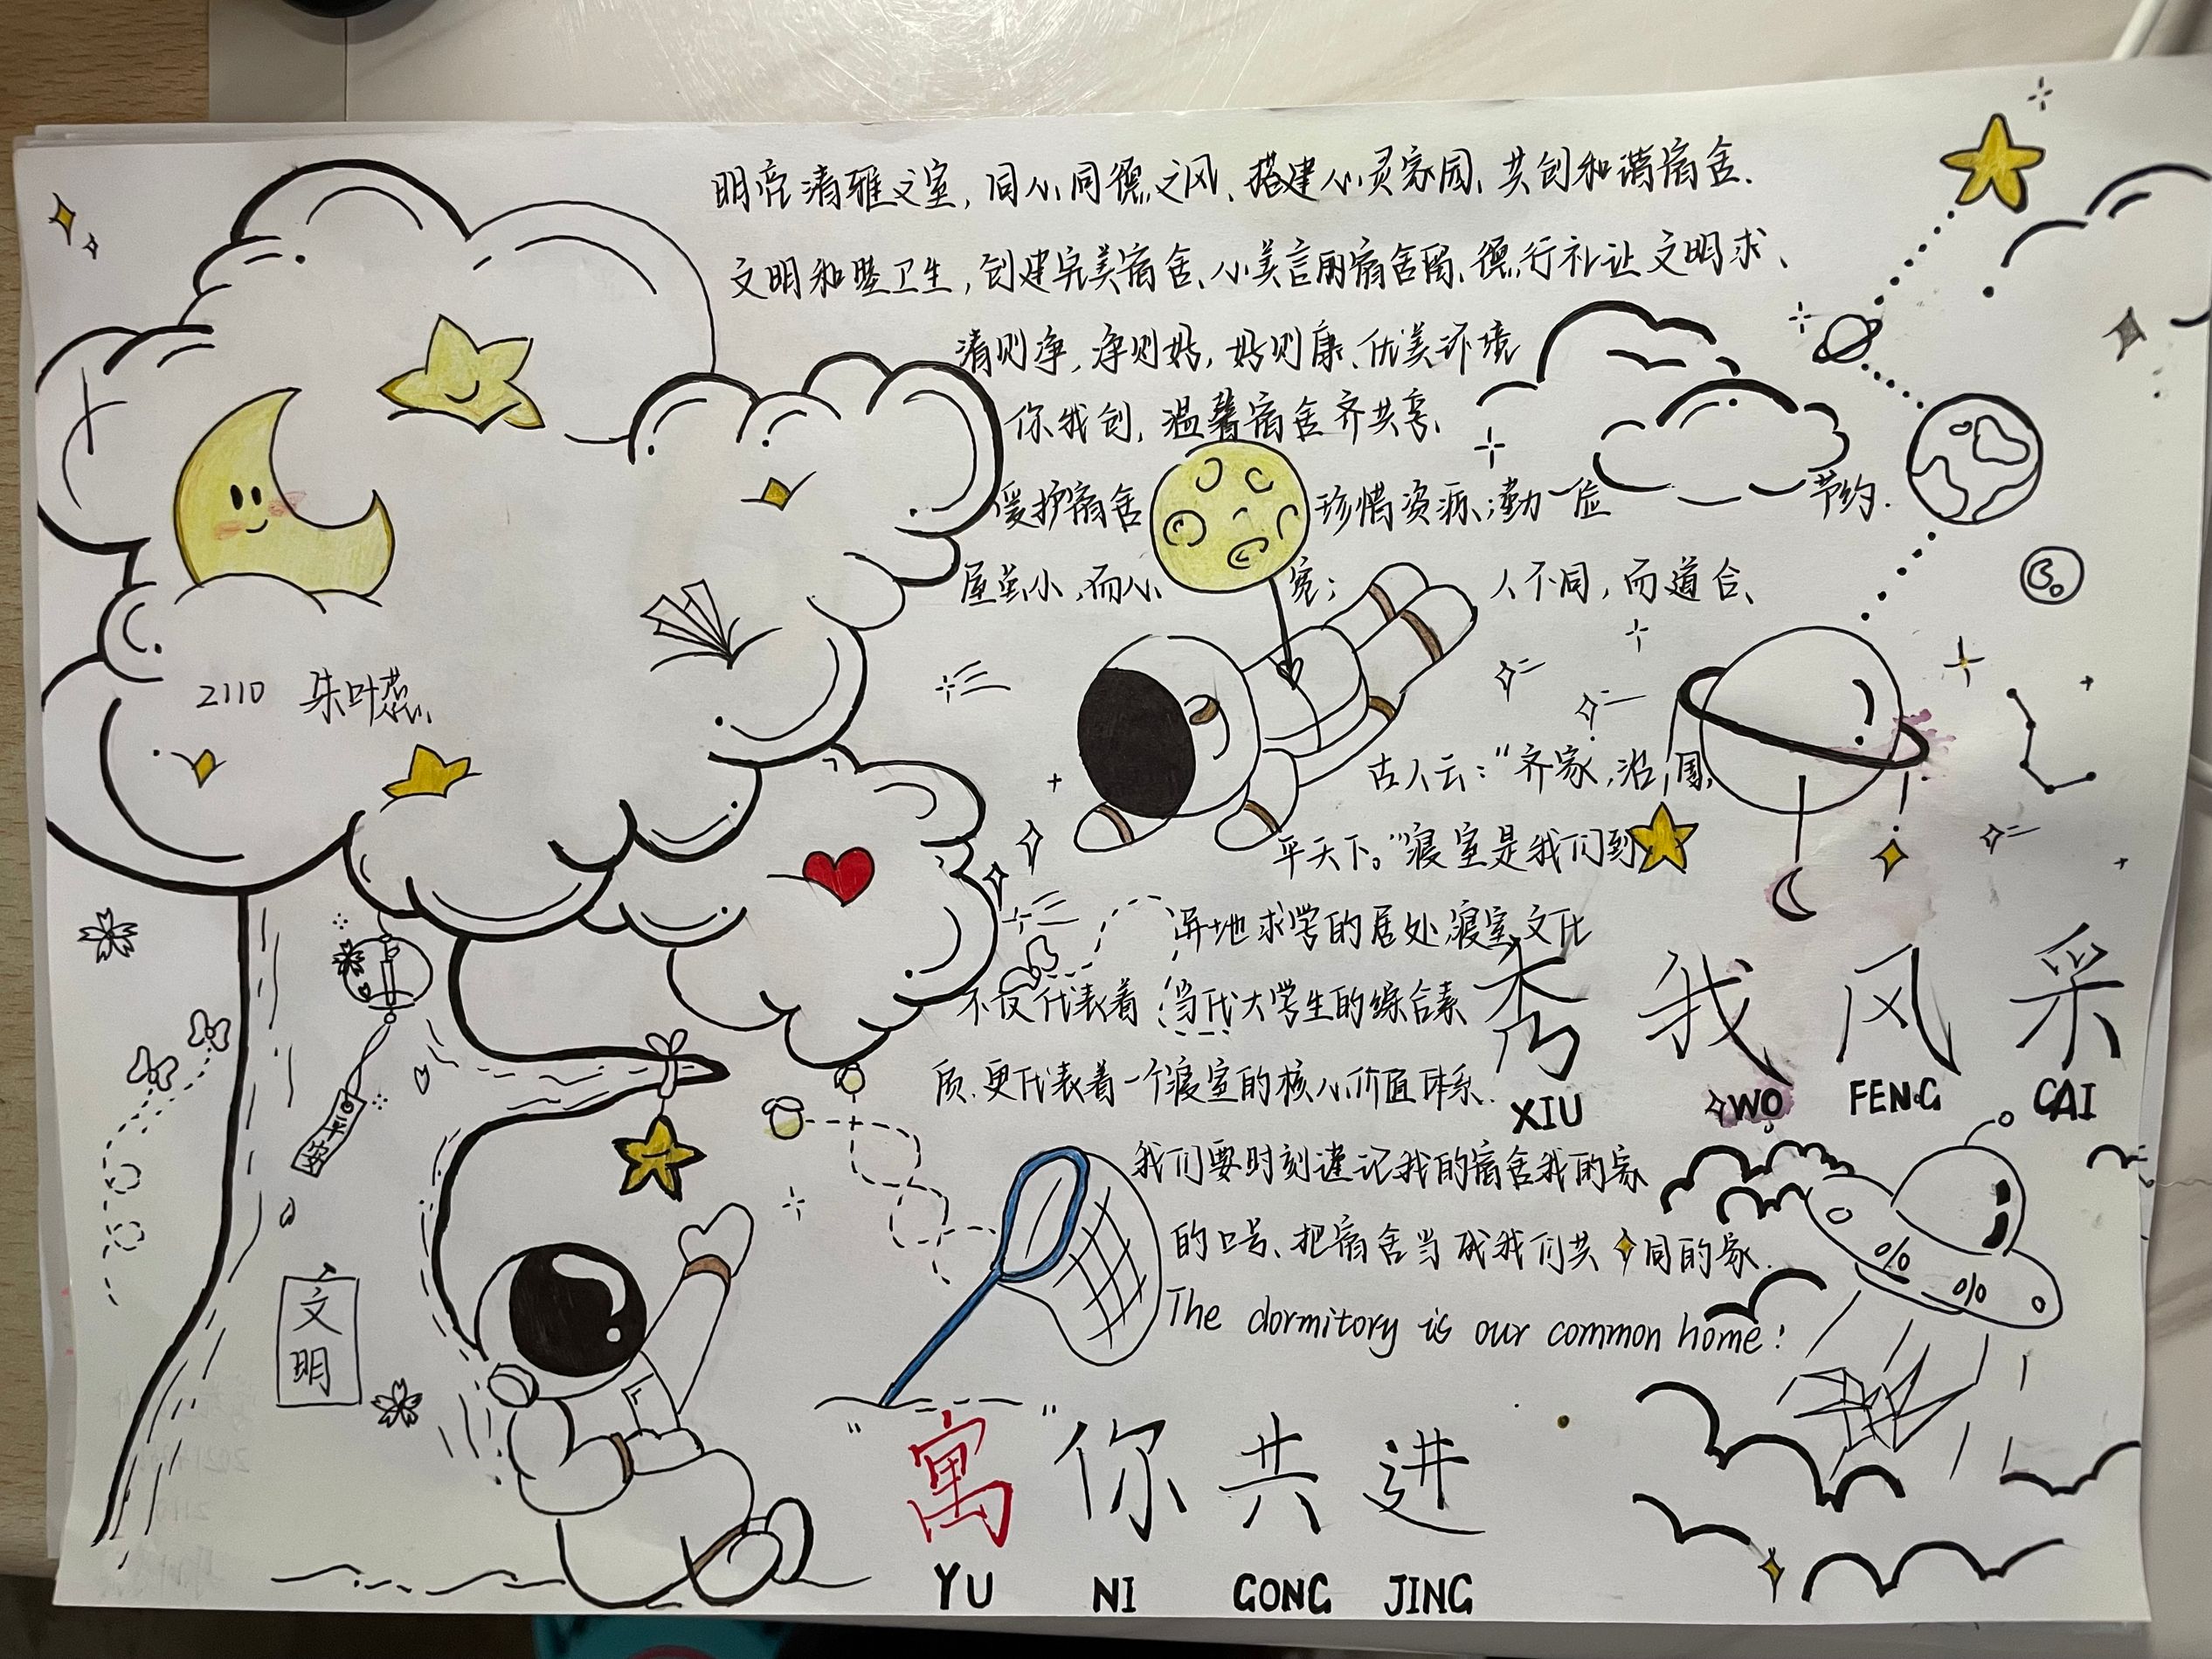 明亮清雅之室，同心同德之风、搭建心灵家园、共创和谐宿舍.
文明和睦卫生，创建完美宿舍、心美言丽宿舍留、德行礼让文明求、
清则净，净则好，好则康、优美环境
你我创，温馨宿舍齐共享、
爱护宿舍 珍惜资源；勤 俭 节约.
屋虽小，而心 宽； 人不同，而道合、
2110 朱叶蕊
古人云：“齐家，治国，
平天下。”寝室是我们到
异地求学的居处，寝室文化
不仅代表着当代大学生的综合素
质、更代表着一个寝室的核心价值体系.
秀我风采
XIU WO FENG CAI
平安
我们要时刻谨记我的宿舍我的家
的口号、把宿舍当成我们共同的家.
The dormitory is our common home!
文明
“寓”你共进
YU NI GONG JING